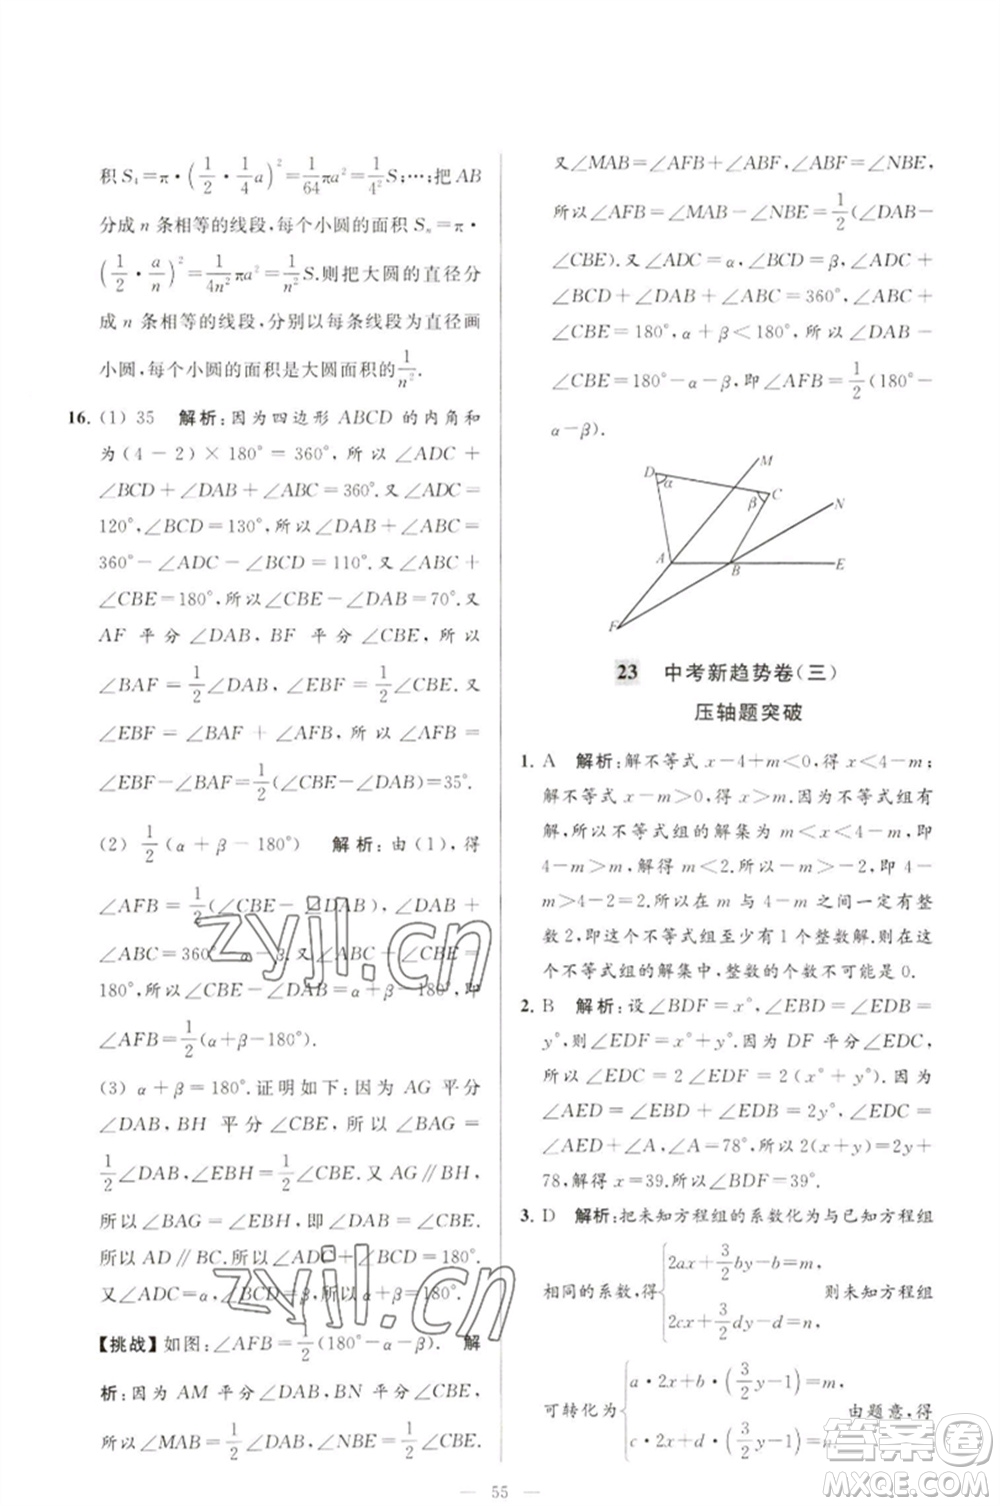 积 S₄=π·(1/2·1/4a)²=1/64πa²=1/4²S;…;把 AB
分成 n 条相等的线段,每个小圆的面积 Sₙ=π·
(1/2·a/n)²=1/4n²πa²=1/n²S.则把大圆的直径分
成 n 条相等的线段,分别以每条线段为直径画
小圆,每个小圆的面积是大圆面积的1/n².
16. (1) 35 解析:因为四边形 ABCD 的内角和
为(4-2)×180°=360°,所以∠ADC+
∠BCD+∠DAB+∠ABC=360°.又∠ADC=
120°,∠BCD=130°,所以∠DAB+∠ABC=
360°-∠ADC-∠BCD=110°.又∠ABC+
∠CBE=180°,所以∠CBE-∠DAB=70°.又
AF 平分∠DAB,BF 平分∠CBE,所以
∠BAF=1/2∠DAB,∠EBF=1/2∠CBE.又
∠EBF=∠BAF+∠AFB,所以∠AFB=
∠EBF-∠BAF=1/2(∠CBE-∠DAB)=35°.
(2) 1/2(α+β-180°) 解析:由(1),得
∠AFB=1/2(∠CBE-∠DAB),∠DAB+
∠ABC=360°-α-β.又∠ABC+∠CBE=
180°,所以∠CBE-∠DAB=α+β-180°,即
∠AFB=1/2(α+β-180°).
(3) α+β=180°.证明如下:因为 AG 平分
∠DAB,BH 平分∠CBE,所以∠BAG=
1/2∠DAB,∠EBH=1/2∠CBE.又 AG∥BH,
所以∠BAG=∠EBH,即∠DAB=∠CBE.
所以 AD∥BC.所以∠ADC+∠BCD=180°.
又∠ADC=α,∠BCD=β,所以α+β=180°.
【挑战】如图:∠AFB=1/2(180°-α-β). 解
析:因为 AM 平分∠DAB,BN 平分∠CBE,
所以∠MAB=1/2∠DAB,∠NBE=1/2∠CBE.
又∠MAB=∠AFB+∠ABF,∠ABF=∠NBE,
所以∠AFB=∠MAB-∠NBE=1/2(∠DAB-
∠CBE).又∠ADC=α,∠BCD=β,∠ADC+
∠BCD+∠DAB+∠ABC=360°,∠ABC+
∠CBE=180°,α+β<180°,所以∠DAB-
∠CBE=180°-α-β,即∠AFB=1/2(180°-
α-β).
D
α
M
C
β
N
A
B
E
F
23 中考新趋势卷(三)
压轴题突破
1. A 解析:解不等式 x-4+m<0,得 x<4-m;
解不等式 x-m>0,得 x>m.因为不等式组有
解,所以不等式组的解集为 m<x<4-m,即
4-m>m,解得 m<2.所以-m>-2,即 4-
m>4-2=2.所以在 m 与 4-m 之间一定有整
数2,即这个不等式组至少有1个整数解.所以在
这个不等式组的解集中,整数的个数不可能是0.
2. B 解析:设∠BDF=x°,∠EBD=∠EDB=
y°,则∠EDF=x°+y°.因为 DF 平分∠EDC,
所以∠EDC=2∠EDF=2(x°+y°).因为
∠AED=∠EBD+∠EDB=2y°,∠EDC=
∠AED+∠A,∠A=78°,所以2(x+y)=2y+
78,解得 x=39.所以∠BDF=39°.
3. D 解析:把未知方程组的系数化为与已知方程组
相同的系数,得{2ax+3/2by-b=m, 2cx+3/2dy-d=m, 则未知方程组
可转化为{a·2x+b·(3/2y-1)=m, c·2x+d·(3/2y-1)=m. 由题意,得
55
zyjl.cn
zyjl.cn
答案圈
MXQE.COM